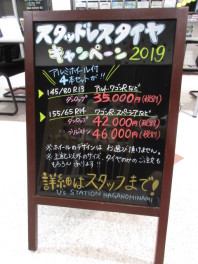 スタッドレスタイヤ
キャンペーン2019
アルミホイール付
4本セットが!!
145/80 R13 アルト・ワゴンRなど
ダンロップ 35,000円(税別)
155/65 R14 ワゴンR・スペーシアなど
ダンロップ 42,000円(税別)
46,000円(税別)
※ホイールのデザインは お選び頂けません。
※上記以外のサイズ、タイヤのみのご注文も
もちろん承ります!
詳細はスタッフまで!
US STATION NAGANOMINAMI